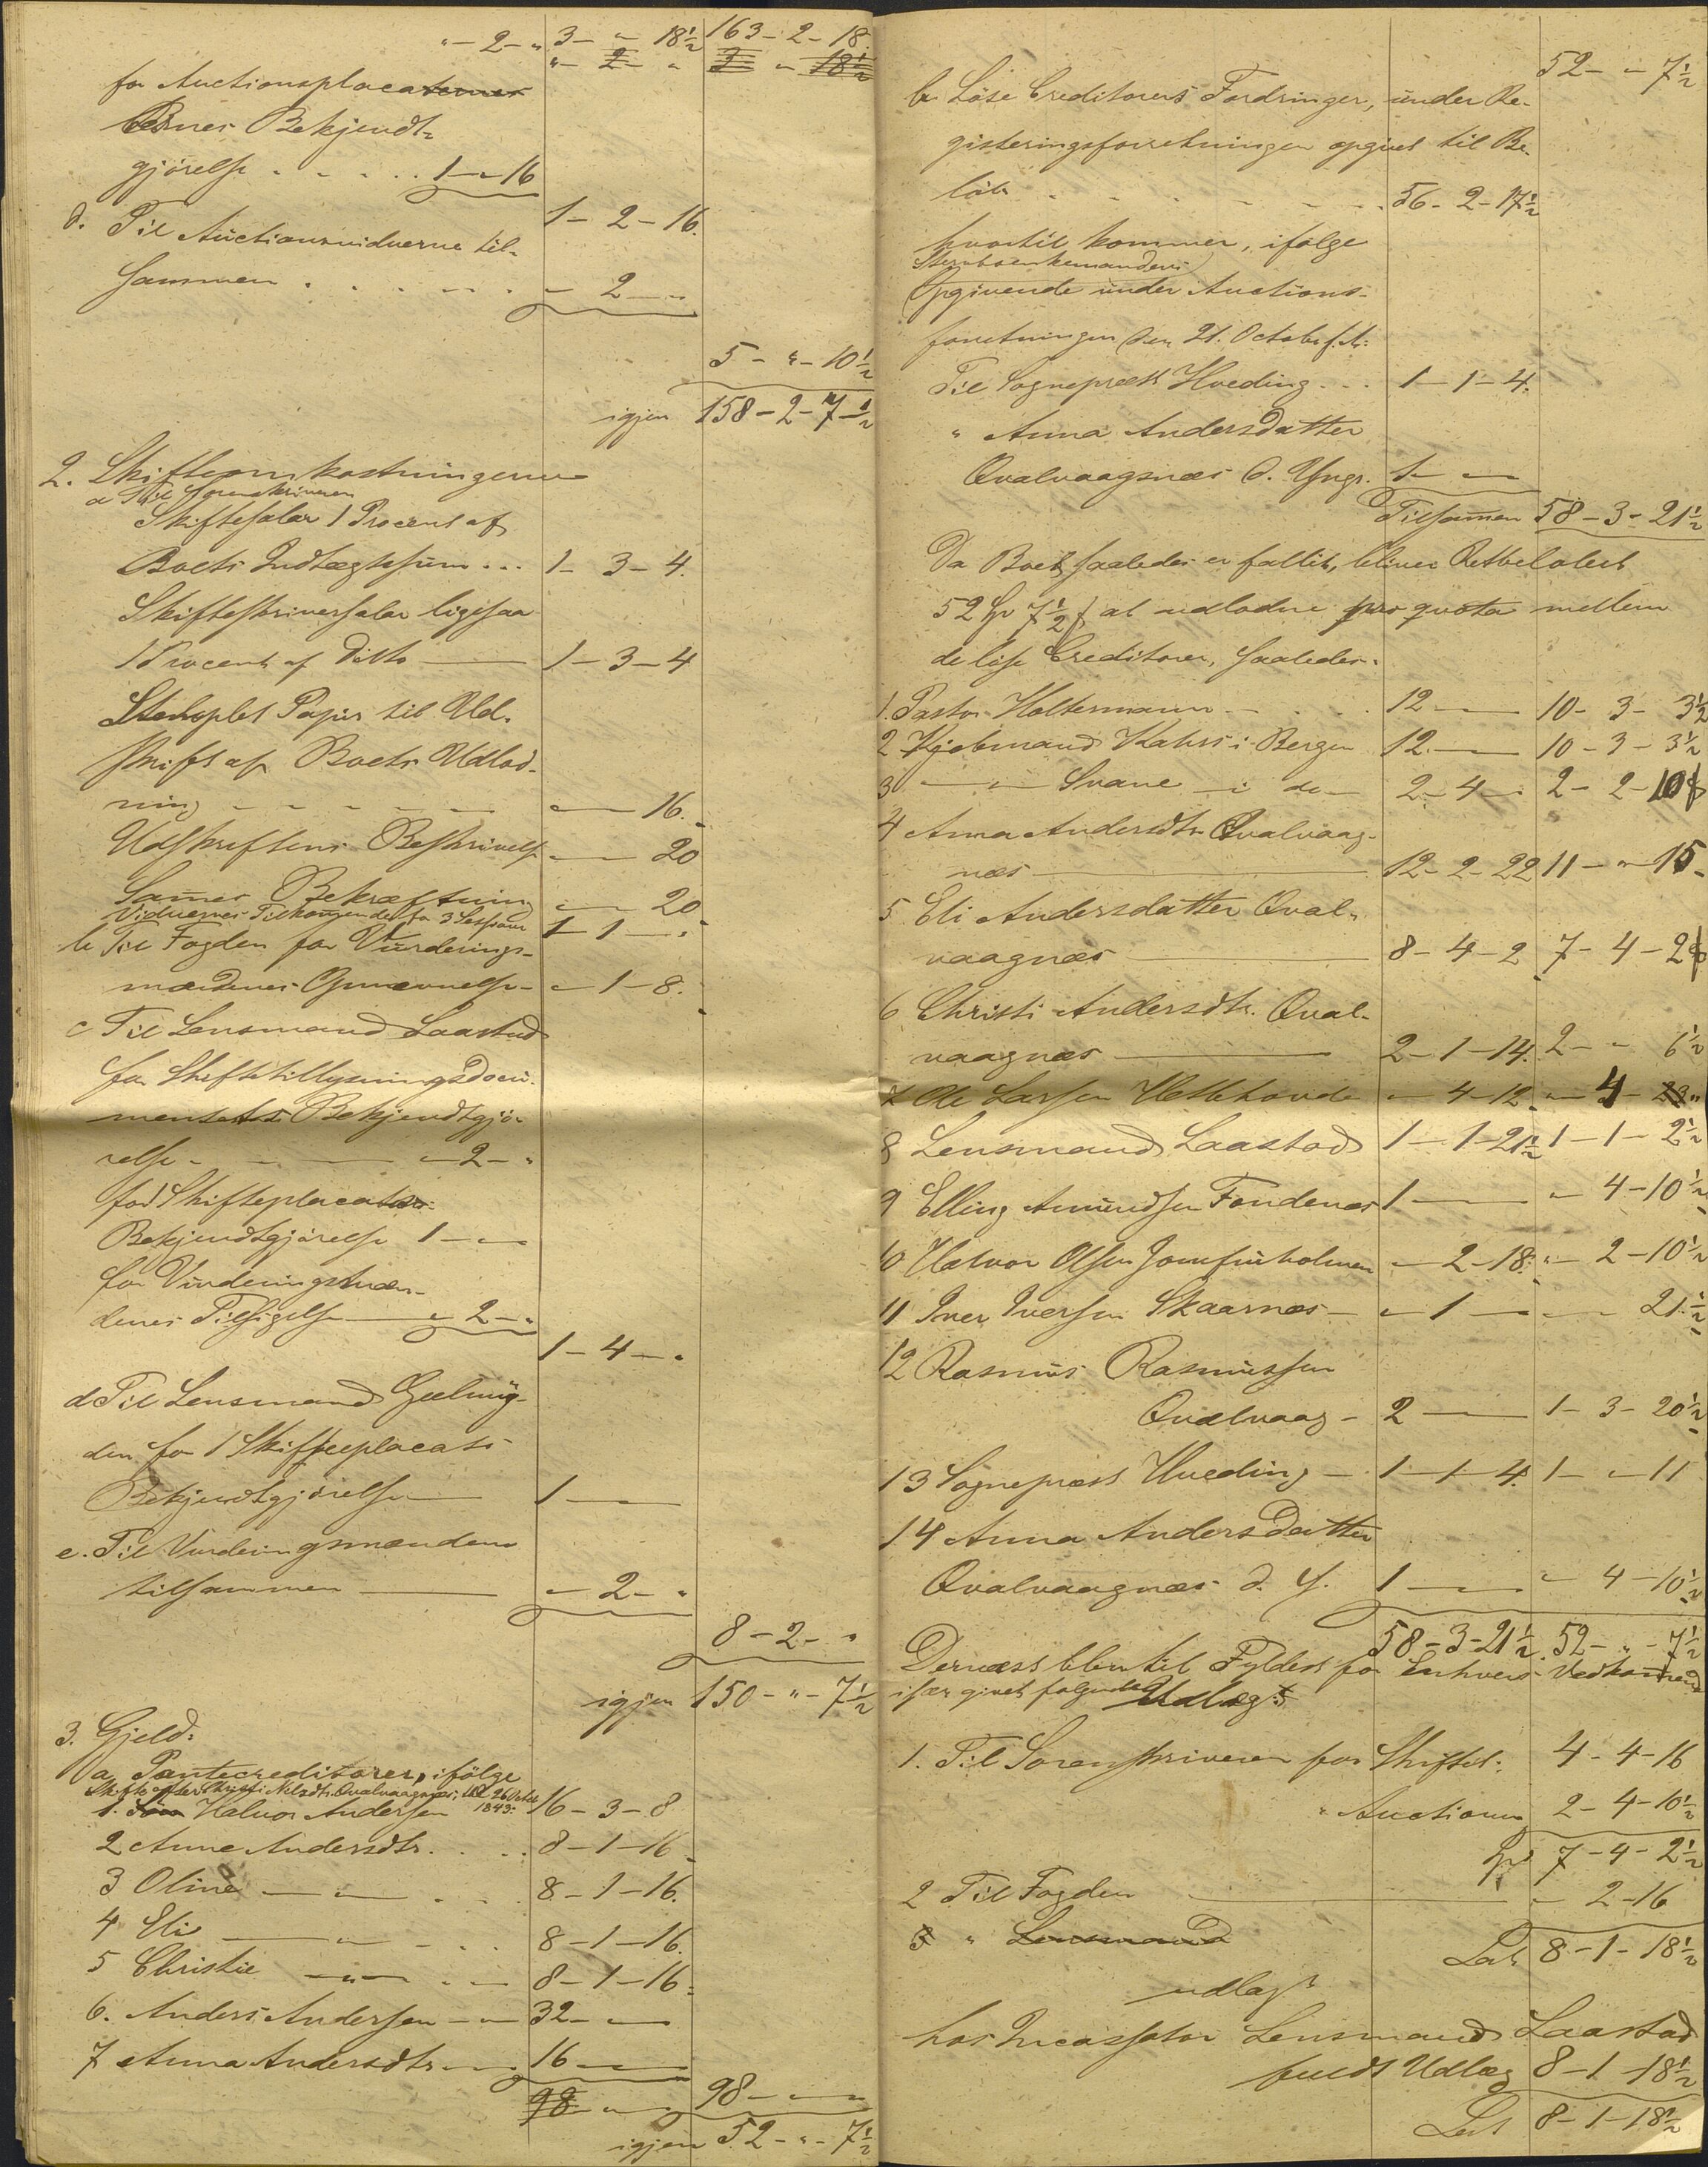 "- 2- " 3- " 18½ 163- 2- 18
"- 2- " 3 " 18½
for Auctionsplaca
ternes Bekjendt-
gjørelse . . . . . 1- " 16
1- 2- 16.
d. Til Auctionsvidnerne til-
sammen . . . . . . - 2 - "
5 - " - 10½
igjen 158- 2- 7½
2. Skifteomkostningerne
a Til Sorenskriveren
Skiftesalar 1 Procent af
Boets Indtægtssum ... 1- 3- 4.
Skifteskriversalar ligesaa
1 Procent af Ditto 1- 3- 4
Stemplet Papir til Ud-
skrift af Boets Udlod-
ning - - - - - " - 16.
Udskriftens Beskrivelse " - 20
Sammes Bekræftning " - 20
Vidnernes Tilkommende for 3 Sessioner 1- 1- "
b Til Fogden for Vurderings-
mændenes Opnævnelse - " - 1- 8.
c Til Lensmand Laastad
for Skiftetillysningsdocu-
mentets Bekjendtgjø-
relse - - - " - 2- "
for Skifteplacats
Bekjendtgjørelse 1- "
for Vurderingsmæn-
denes Tilsigelse " - 2- "
1- 4- "
d Til Lensmand Gjelmyg-
den for 1 Skifteplacats
Bekjendtgjørelse 1- "
e. Til Vurderingsmændene
tilsammen " - 2- "
8- 2- "
igjen 150- " - 7½
3. Gjeld:
a Pantecreditorer, ifølge
Skifte efter Christi Nilsdtr. Qvalvaagnæs, 26 Octbr 1843:
1. Halvor Andersen 16- 3- 8
2 Anne Andersdtr. . . . 8- 1- 16
3 Oline — " — . . 8- 1- 16.
4 Eli — " — . . 8- 1- 16.
5 Christie — " — . . 8- 1- 16.
6. Anders Andersen - " 32- "
7 Anna Andersdtr. 16 - "
98 " 98- "
igjen 52- " - 7½
52- " - 7½
b. Løse Creditorers Fordringer, under Re-
gisteringsforretningen opgivet til Be-
løb . . . . . . 56- 2- 17½
hvortil kommer, ifølge
Sterboenkemandens
Opgivende under Auctions-
forretningen den 21. October f. A:
Til Sognepræst Hvoding . . . 1- 1- 4.
" Anna Andersdatter
Qvalvaagsnæs d. Yngr. 1- "
Tilsammen 58- 3- 21½
Da Boet saaledes er fallit, bliver Restbeløbet
52 Spd 7½ s at udlodne pro qvota mellem
de løse Creditorer, saaledes:
1. Pastor Holtermann - . . . 12 — 10- 3- 3½
2 Kjøbmand Kahrs i Bergen 12. — 10- 3- 3½
3 — " — Svane - i do - 2- 4- " 2- 2- 10
4 Anna Andersdtr. Qvalvaag-
næs 12- 2- 22 11- " - 15-
5 Eli Andersdatter Qval-
vaagnæs 8- 4- 2 7- 4- 2
6 Christi Andersdtr. Qval-
vaagnæs 2- 1- 14. 2- " 6½
7 Ole Larsen " - 4- 12. " - 4 - "
8 Lensmand Laastad 1- 1- 21½ 1- 1- 2½
9 Elling Amundsen Fondenæs 1 — " - 4- 10½
10 Halvor Olsen Jomfruholmen " - 2- 18. " - 2- 10½
11 Iver Iversen Skaarnæs - " 1 — " — " 21½
12 Rasmus Rasmussen
Qvalvaag - 2 — 1- 3- 20½
13 Sognepræst Hvoding - 1- 1- 4. 1- " - 11
14 Anna Andersdatter
Qvalvaagnæs d. Y. 1 — " " 4- 10½
58- 3- 21½ 52- " - 7½
Dernæst blev til Fyldest for Enhvers Vedkommende
især givet følgende Udlæg:
1. Til Sorenskriveren for Skiftet: 4- 4- 16
" Auctionen 2- 4- 10½
Spd 7- 4- 2½
2 Til Fogden " - 2- 16
3 " Lensmand
Lat 8- 1- 18½
udlagt
hos Incassator Lensmand Laastad
fuldt Udlæg 8- 1- 18½
Lat 8- 1- 18½